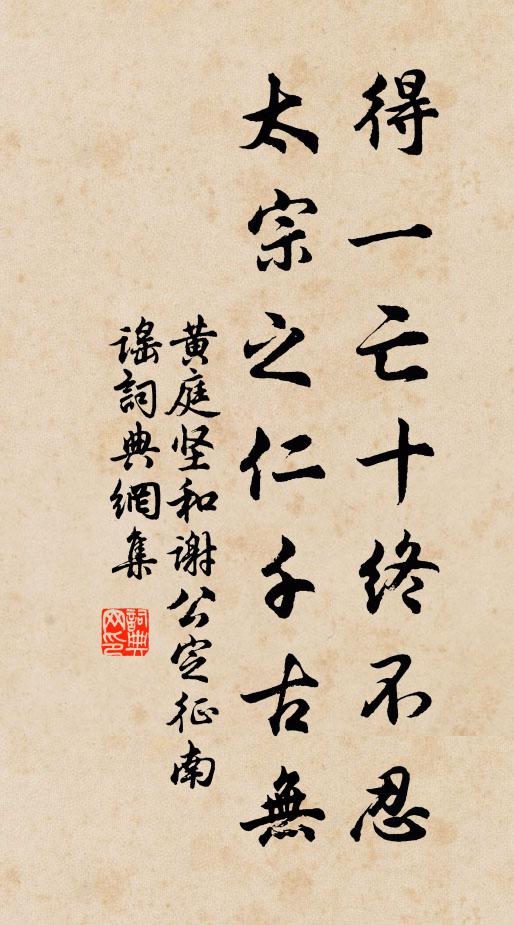 得一亡十終不忍
太宗之仁千古無
黄庭坚和谢公定征南
謠詞典網集
詞典
网印